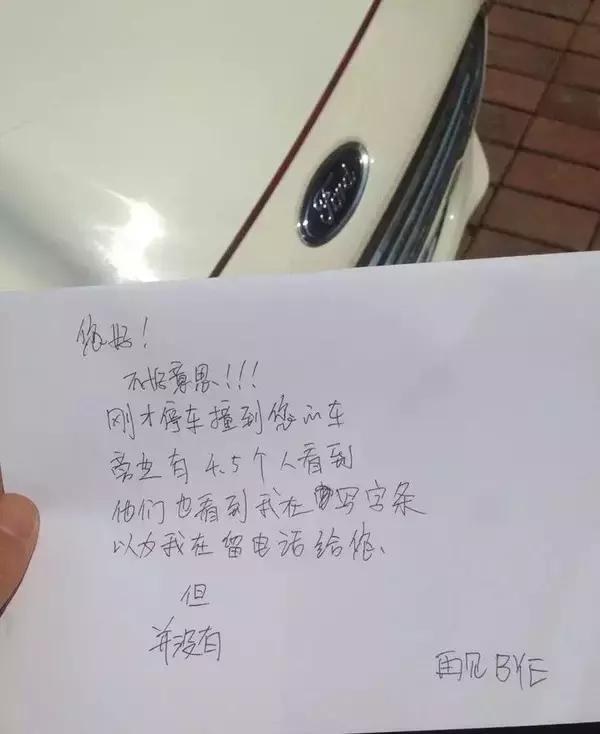 Ford
您好!
不好意思!!!
刚才停车撞到您的车
旁边有4.5个人看到
他们也看到我在写字条
以为我在留电话给你、
但
并没有
再见 BYE